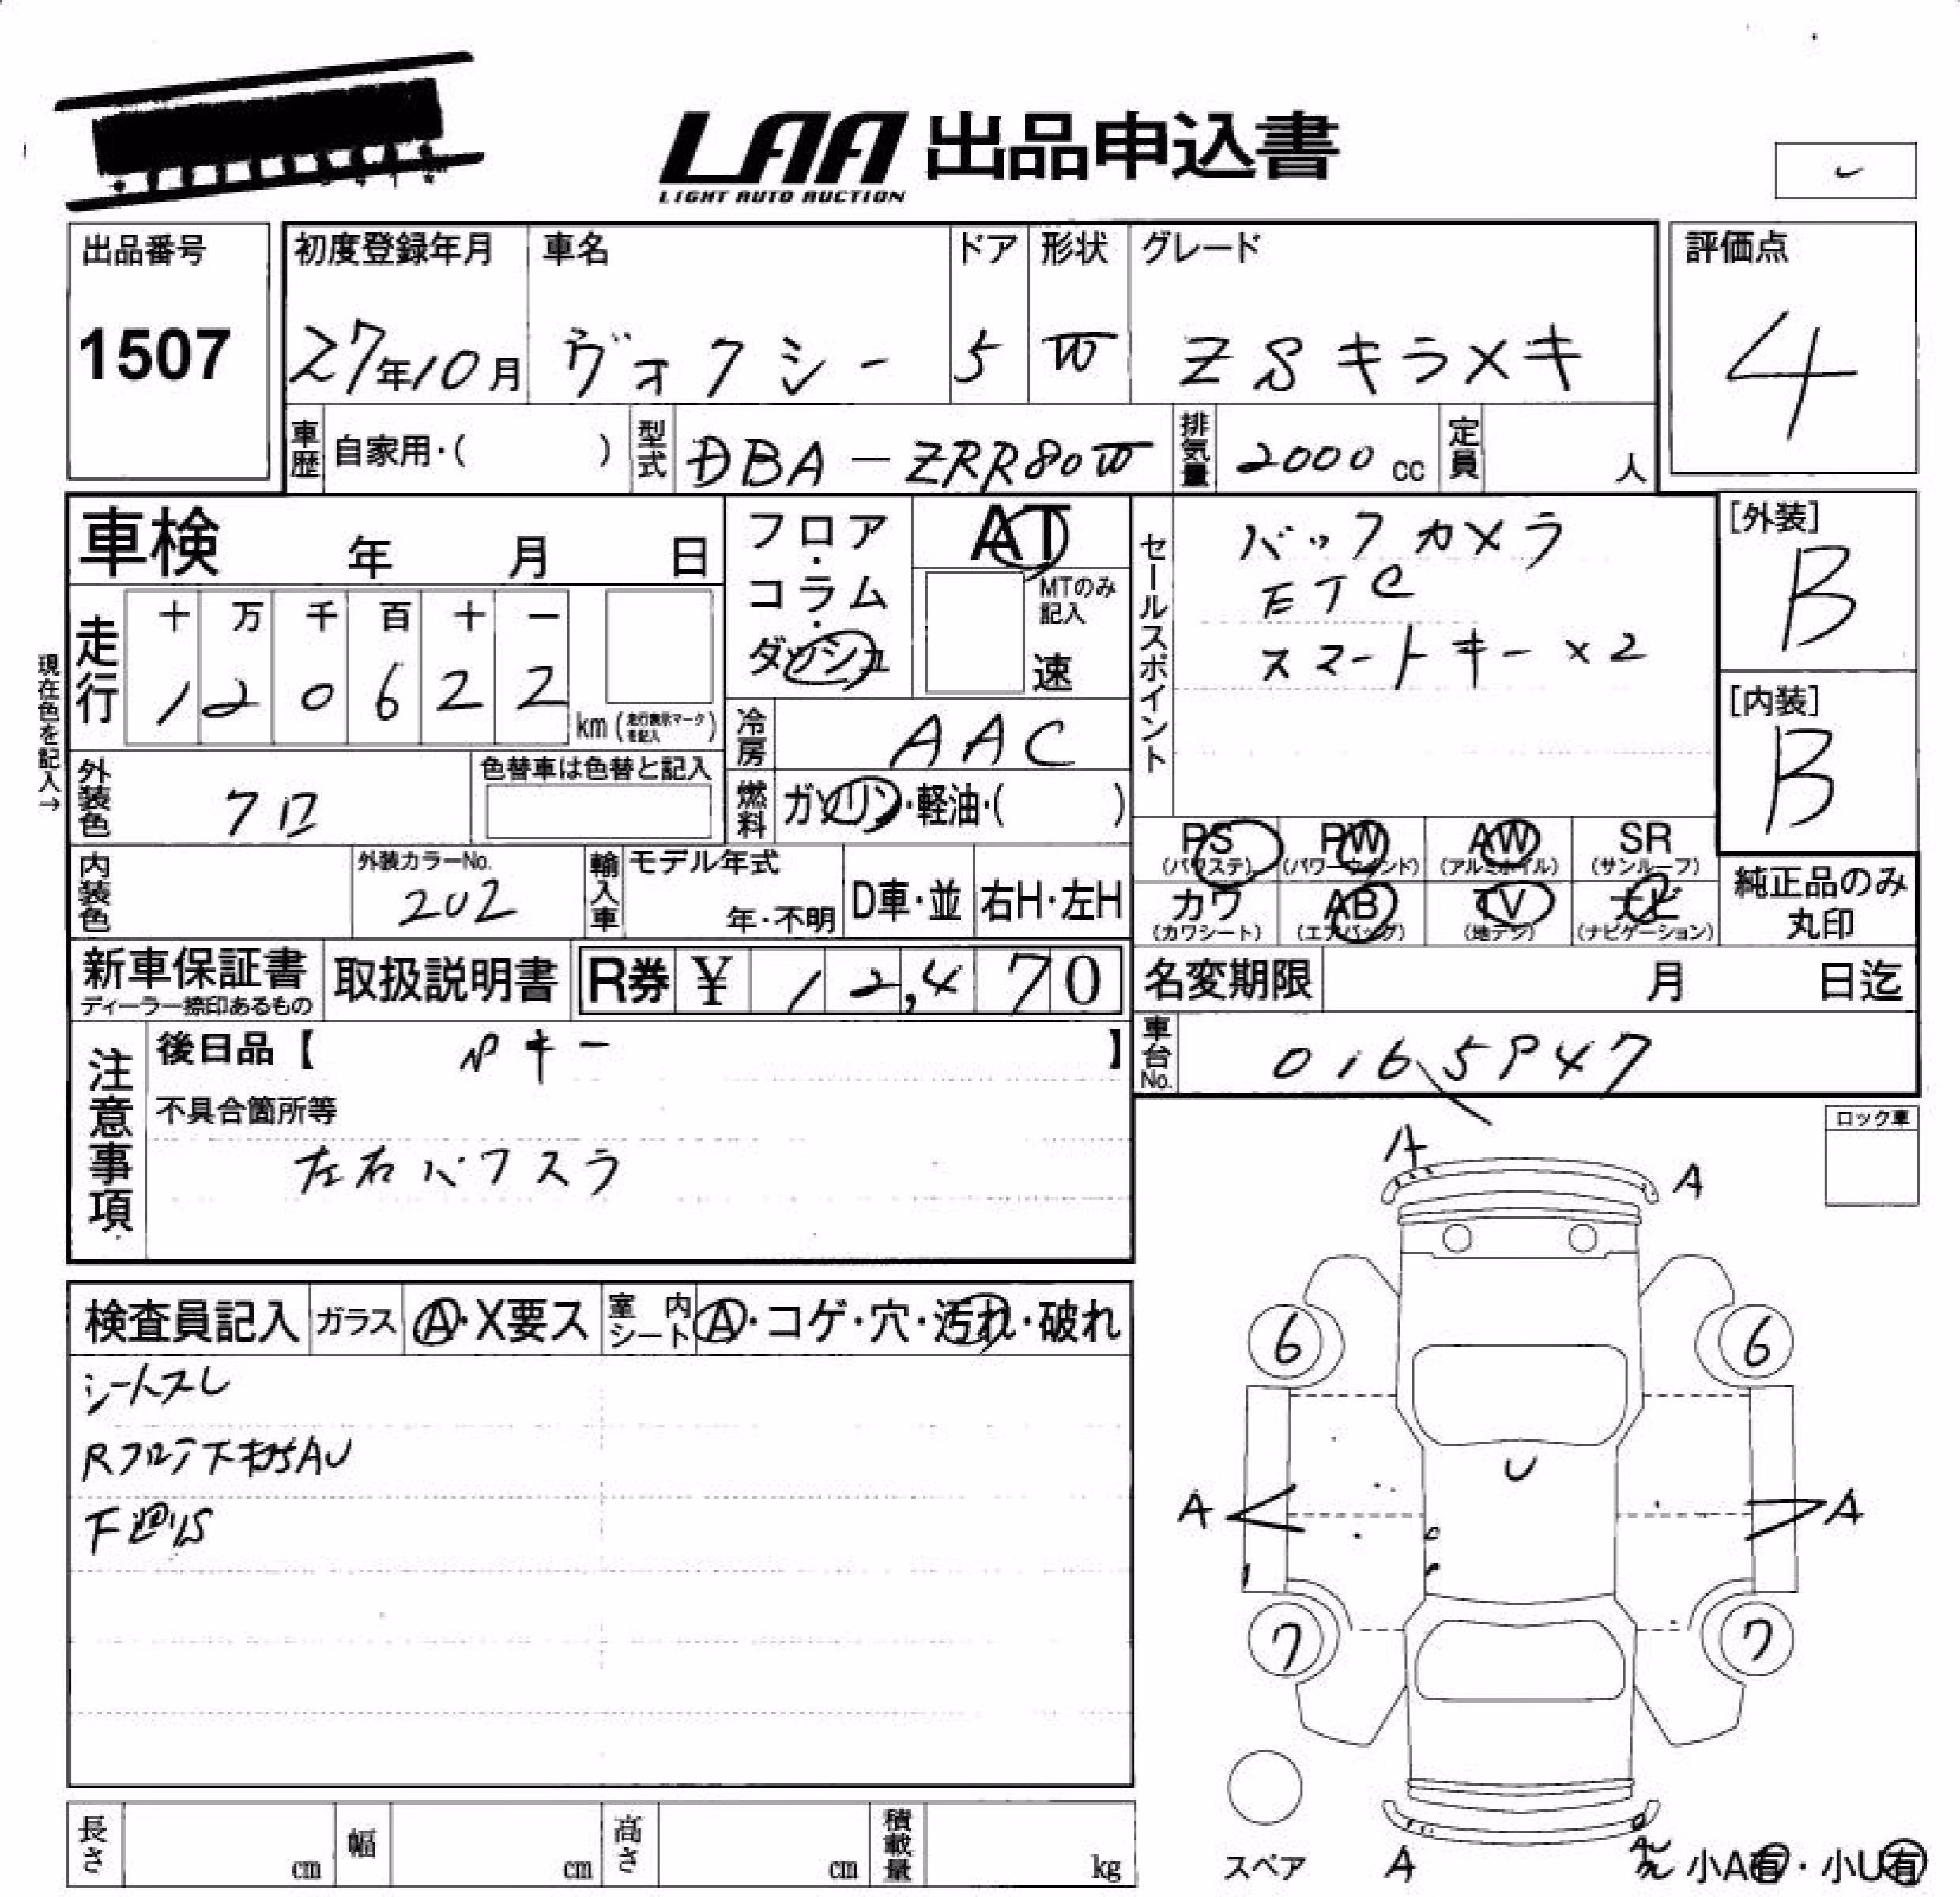 LAA 出品申込書
LIGHT AUTO AUCTION
出品番号
1507
初度登録年月 車名 ドア 形状 グレード
27年10月 ヴォクシー 5 W ZSキラメキ
評価点
4
車歴 自家用・( ) 型式 DBA-ZRR80W 排気量 2000 cc 定員 人
車検 年 月 日
フロア・コラム・ダッシュ
AT
MTのみ記入
速
セールスポイント
バックカメラ
ETC
スマートキー×2
[外装]
B
[内装]
B
現在色を記入→
走行
十 万 千 百 十 一
1 2 0 6 2 2
km (走行表示マークを記入)
冷房 AAC
外装色 クロ
色替車は色替と記入
燃料 ガソリン・軽油・( )
PS PW AW SR
(パワステ) (パワーウィンド) (アルミホイル) (サンルーフ)
カワ AB TV ナビ
(カワシート) (エアバッグ) (地デジ) (ナビゲーション)
純正品のみ
丸印
内装色
外装カラーNo.
202
輸入車 モデル年式
年・不明 D車・並 右H・左H
新車保証書 取扱説明書 R券 ¥ 12,470
ディーラー捺印あるもの
名変期限 月 日迄
車台No. 0165947
注意事項
後日品【 キー 】
不具合箇所等
左右パワスラ
ロック車
検査員記入 ガラス A・X要ス 室内シート A・コゲ・穴・汚れ・破れ
シートスレ
下廻りS
A
A
6 6
U
A A
7 7
スペア A 小A有・小U有
長さ cm 幅 cm 高さ cm 積載量 kg